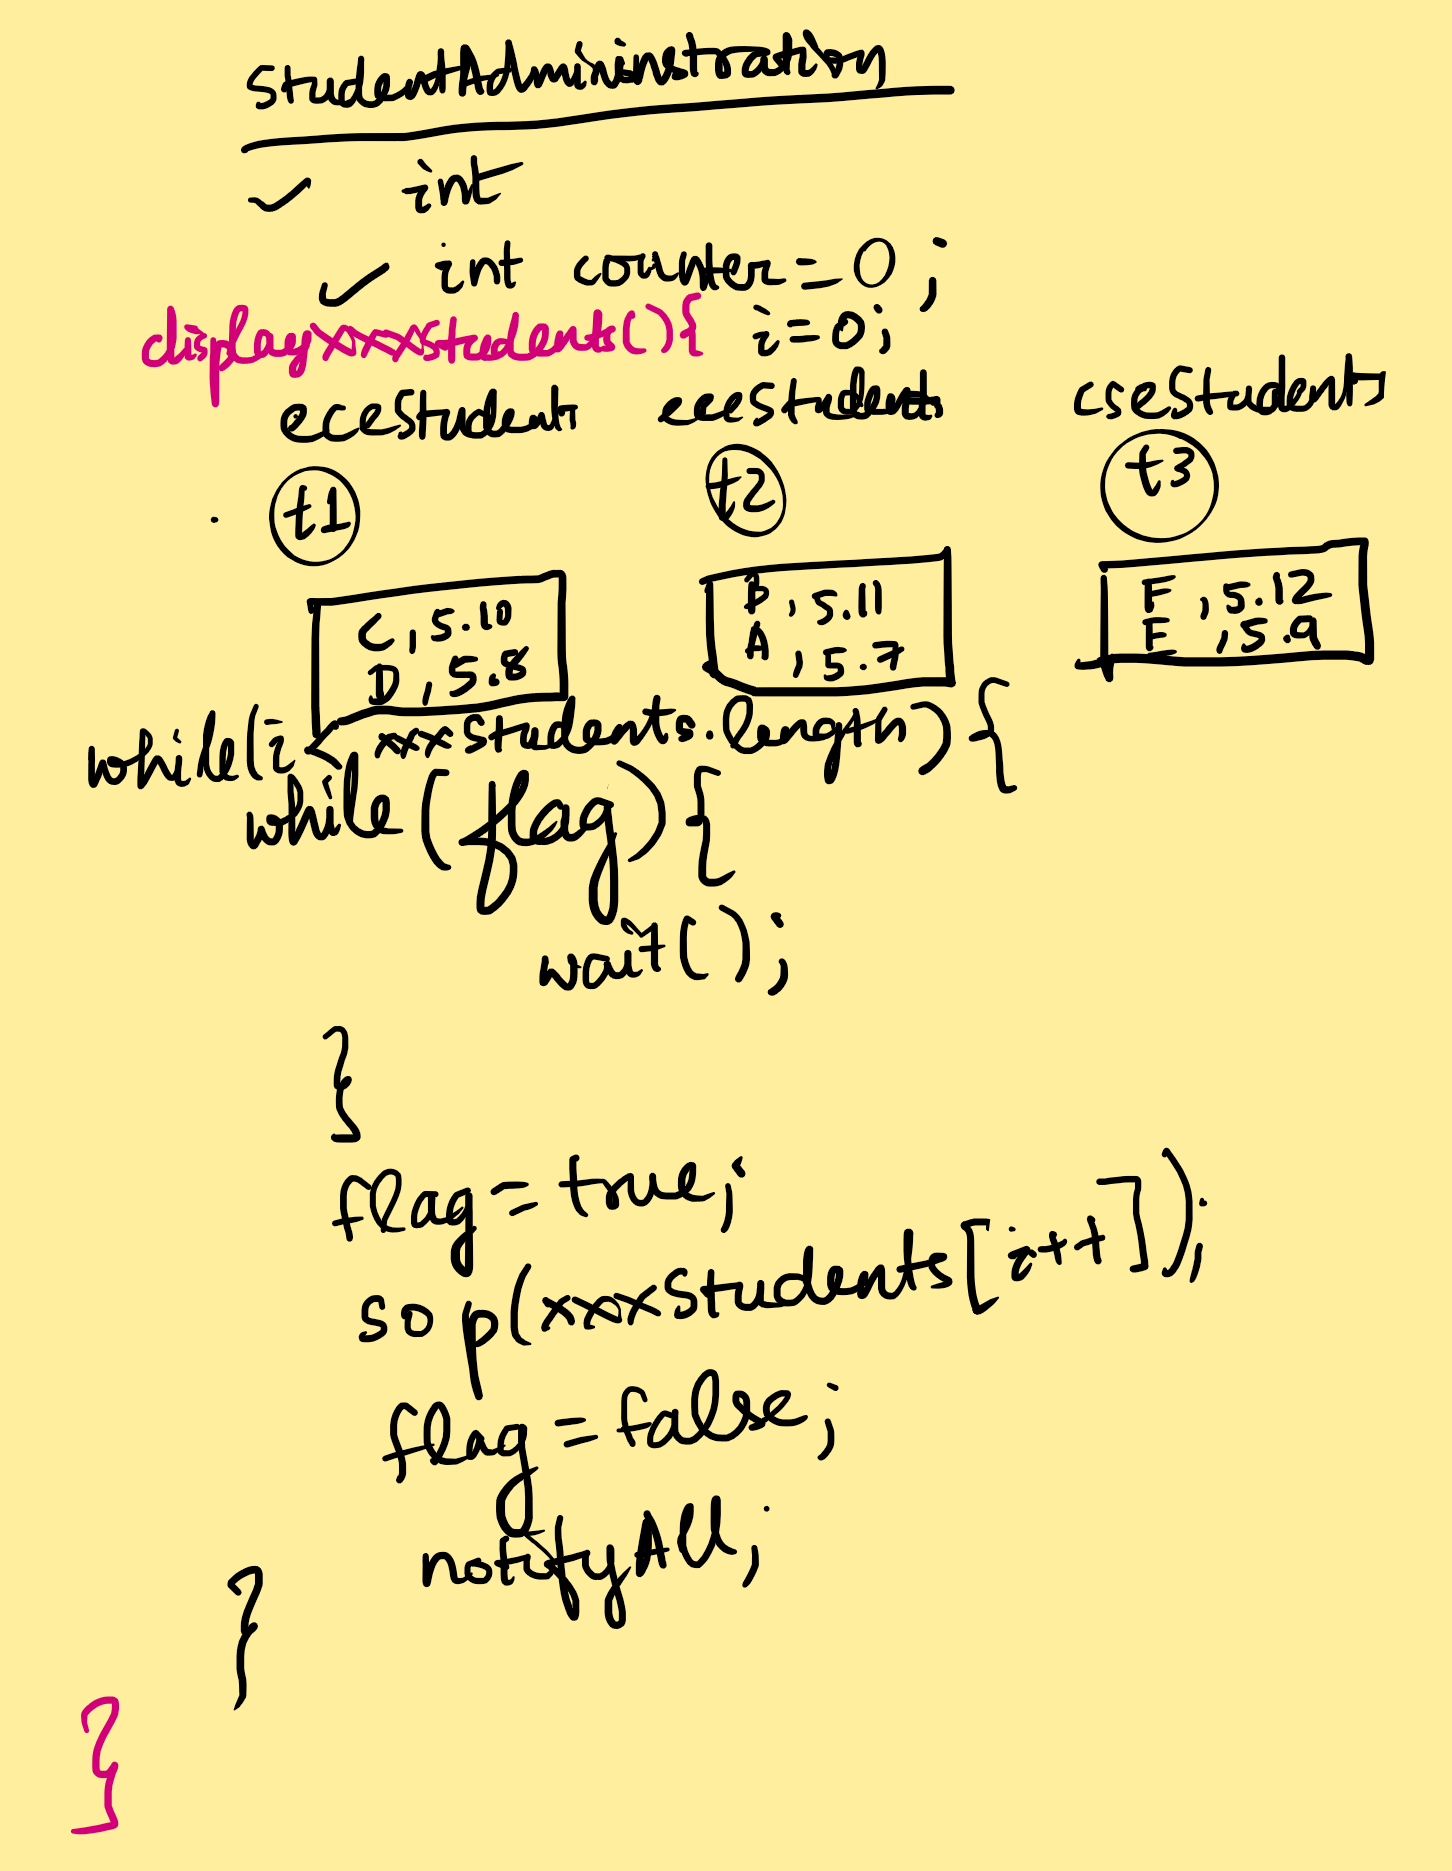 StudentAdmininstration
int
int counter=0;
displayxxxStudents(){ i=0;
eceStudents eeeStudents cseStudents
t1 t2 t3
C, 5.10 B, 5.11 F, 5.12
D, 5.8 A, 5.7 E, 5.9
while(i< xxxStudents.length){
while(flag){
wait();
}
flag=true;
sop(xxxStudents[i++]);
flag=false;
notifyAll;
}
}